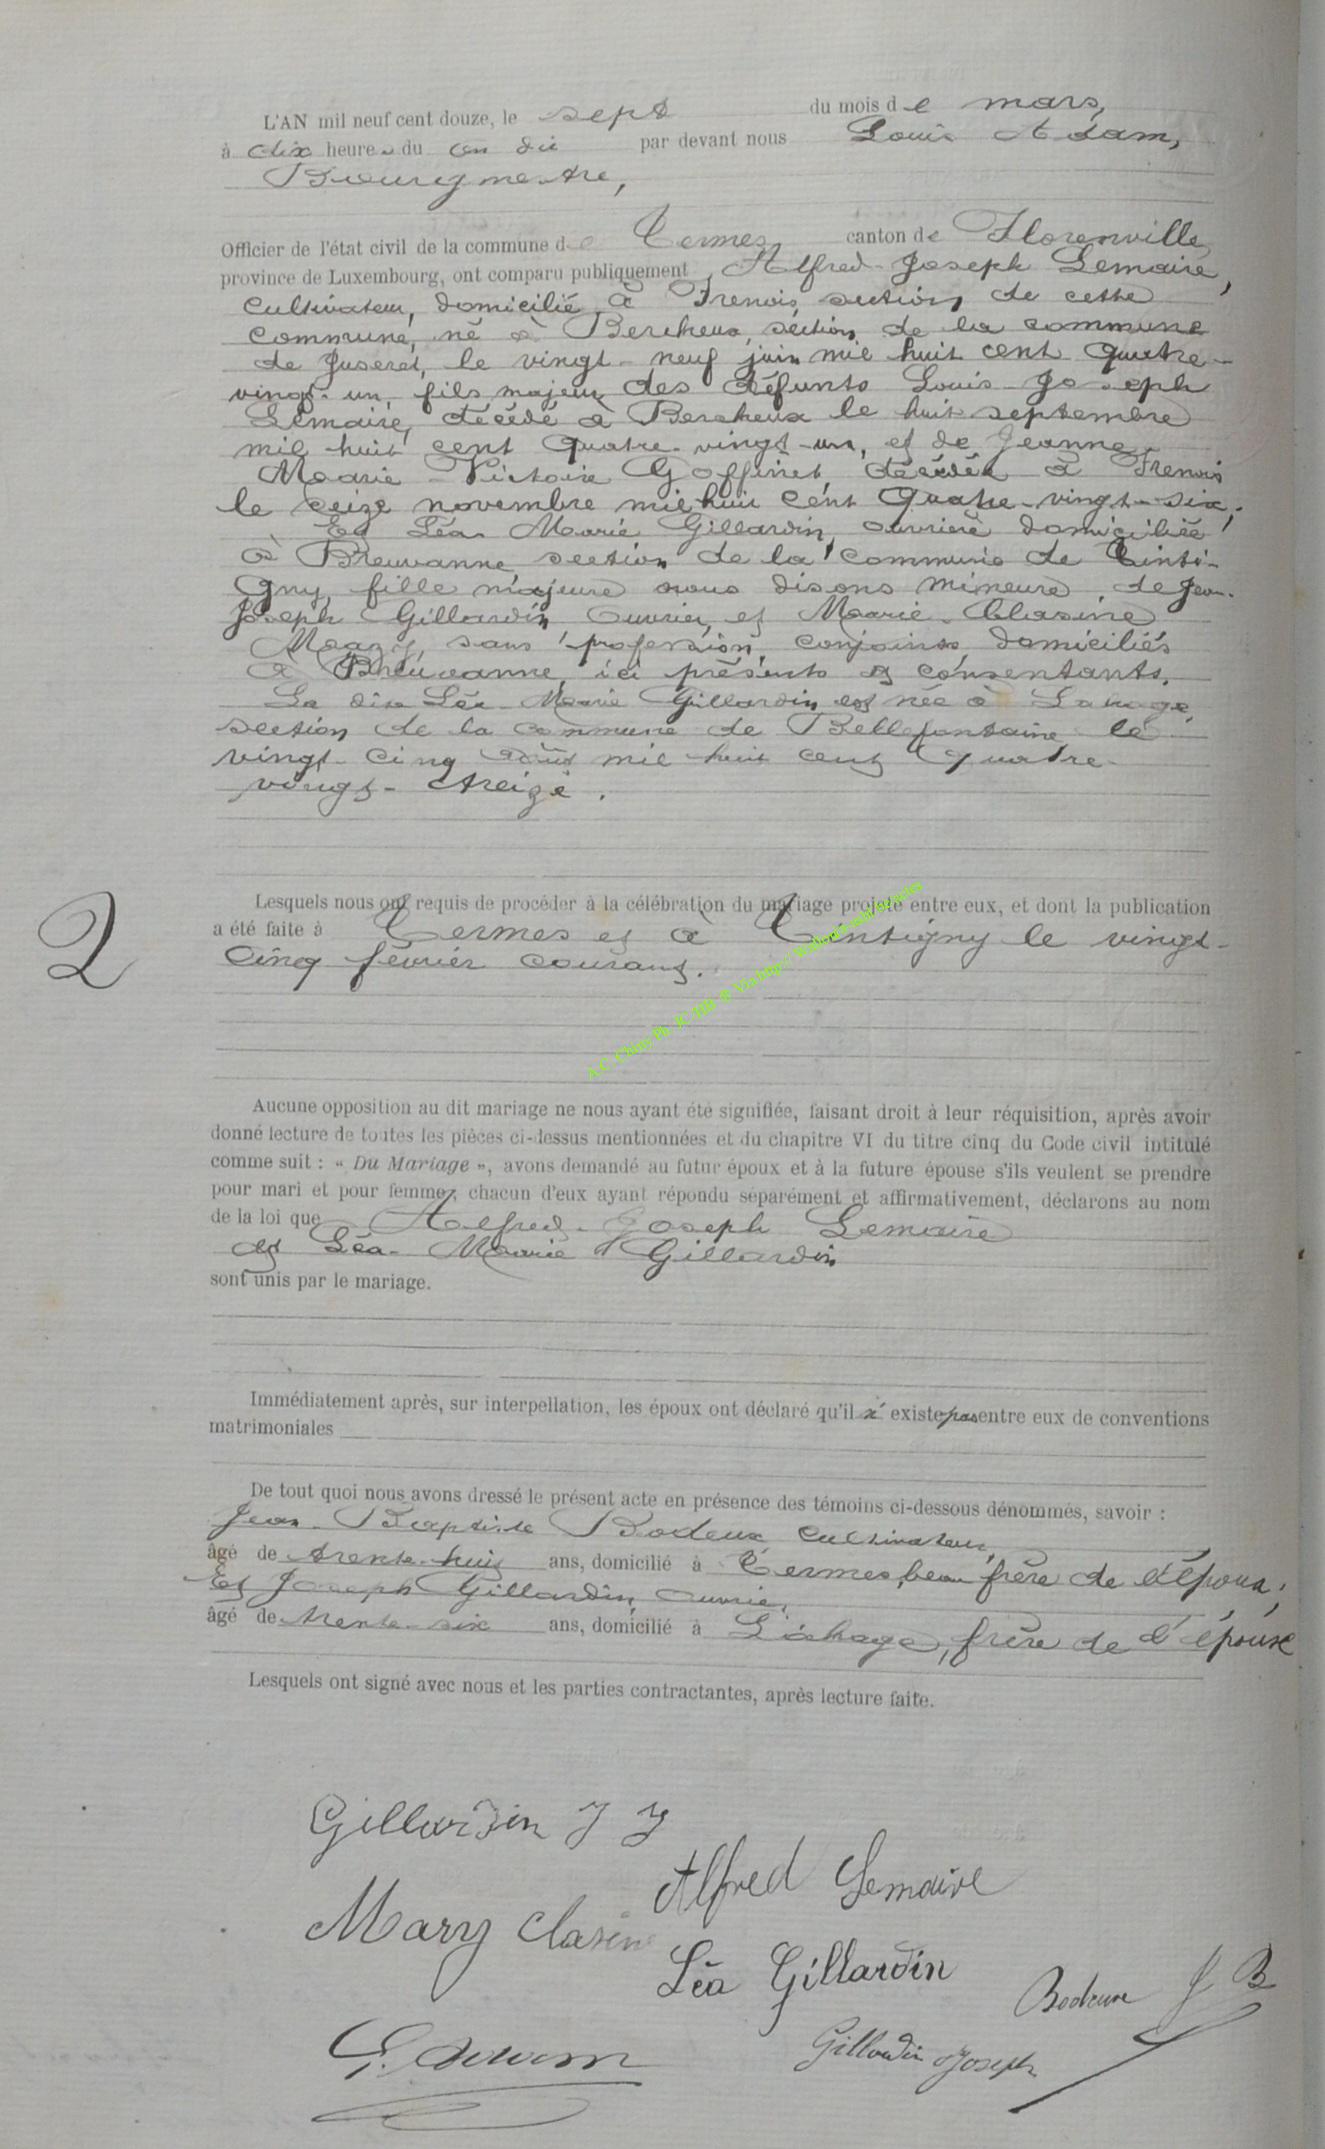 L'AN mil neuf cent douze, le sept du mois de mars,
à dix heures du          par devant nous Louis Adam,
Bourgmestre,
Officier de l'état civil de la commune de Termes, canton de Florenville,
province de Luxembourg, ont comparu publiquement, Alfred-Joseph Lemaire,
cultivateur, domicilié à Frenois, section de cette
commune, né à Bercheux, section de la commune
de Juseret, le vingt-neuf juin mil huit cent quatre-
vingt-un, fils majeur des défunts Louis-Joseph
Lemaire, décédé à Bercheux le huit septembre
mil huit cent quatre-vingt-un, et de Jeanne
Marie-Victoire Goffinet, décédée à Frenois
le seize novembre mil huit cent quatre-vingt-six;
Et Léa-Marie Gillardin, ouvrière domiciliée
à Breuvanne section de la commune de Tinti-
gny, fille majeure nous disons mineure, de Jean-
Joseph Gillardin ouvrier, et Marie-Clasine
Mary, sans profession, conjoints domiciliés
à Breuvanne, ici présents et consentants.
La dite Léa-Marie Gillardin est née à Lahage,
section de la commune de Bellefontaine le
vingt-cinq août mil huit cent quatre-
vingt-treize.
2
Lesquels nous ont requis de procéder à la célébration du mariage projeté entre eux, et dont la publication
a été faite à Termes et à Tintigny le vingt-
cinq février courant.
A.C. Chiny Ph. JC/HB ® Via http://
Aucune opposition au dit mariage ne nous ayant été signifiée, faisant droit à leur réquisition, après avoir
donné lecture de toutes les pièces ci-dessus mentionnées et du chapitre VI du titre cinq du Code civil intitulé
comme suit : « Du Mariage », avons demandé au futur époux et à la future épouse s'ils veulent se prendre
pour mari et pour femme; chacun d'eux ayant répondu séparément et affirmativement, déclarons au nom
de la loi que Alfred-Joseph Lemaire
et Léa-Marie Gillardin
sont unis par le mariage.
Immédiatement après, sur interpellation, les époux ont déclaré qu'il n'existe pas entre eux de conventions
matrimoniales
De tout quoi nous avons dressé le présent acte en présence des témoins ci-dessous dénommés, savoir :
Jean-Baptiste Bodeux, cultivateur,
âgé de trente-huit ans, domicilié à Termes, beau-frère de l'époux;
Et Joseph Gillardin, ouvrier,
âgé de trente-six ans, domicilié à Lahage, frère de l'épouse
Lesquels ont signé avec nous et les parties contractantes, après lecture faite.
Gillardin J J
Alfred Lemaire
Mary Clasine
Léa Gillardin
Bodeux J B
Gillardin Joseph
Adam